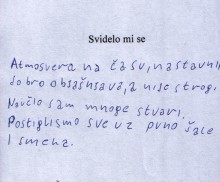 Svidelo mi se
Atmosvera na času, nastavni
dobro obsašnsava, a nise strogi
Navčio sam mnoge stvari.
Postiglismo sve uz puno šale
I smeha.